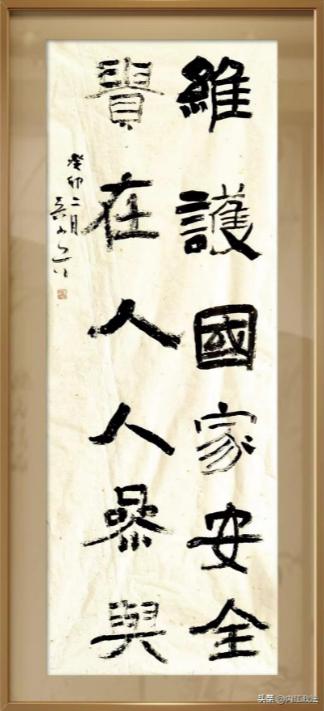 維護國家安全
貴在人人參與
癸卯二月
头条 @内江政法